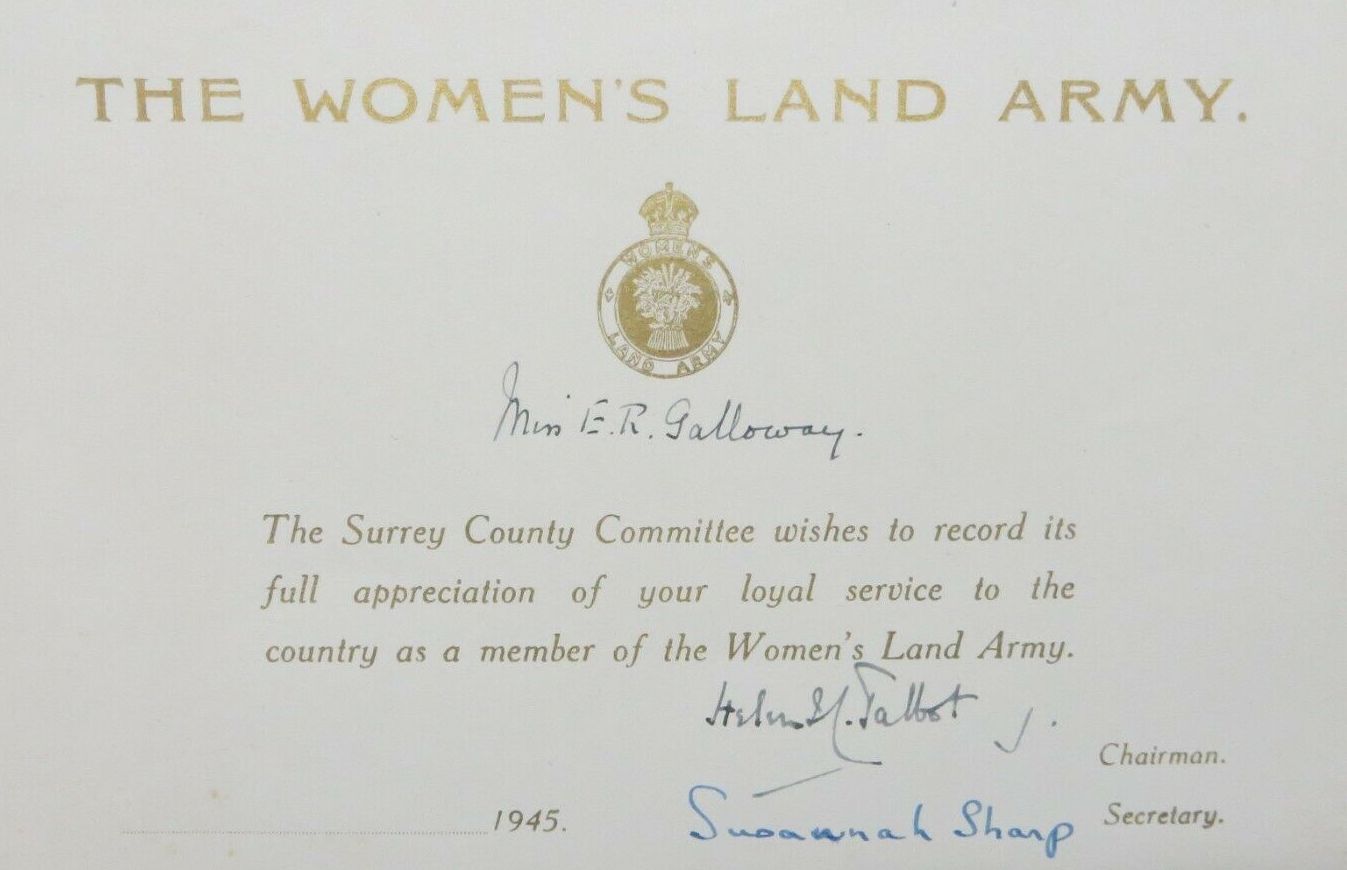 THE WOMEN'S LAND ARMY.
WOMEN'S
LAND ARMY
Miss E.R. Galloway.
The Surrey County Committee wishes to record its
full appreciation of your loyal service to the
country as a member of the Women's Land Army.
Helen Talbot
Chairman.
1945. Susannah Sharp Secretary.